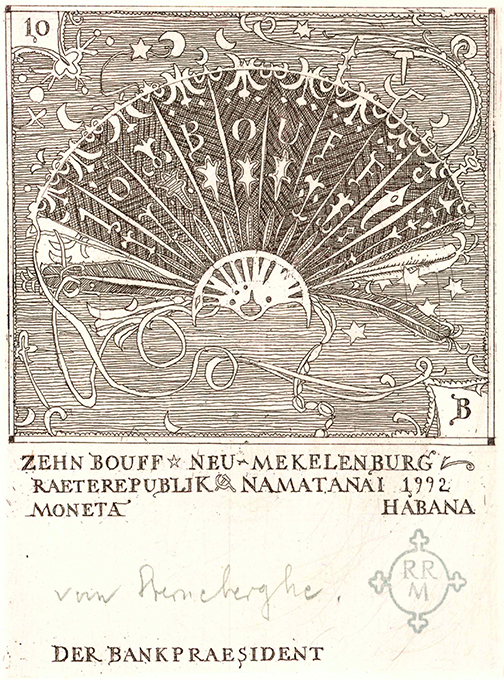 10
BOUFF
B
ZEHN BOUFF NEU-MEKELENBURG
RAETEREPUBLIK NAMATANAI 1992
MONETA HABANA
RR
M
DER BANKPRAESIDENT